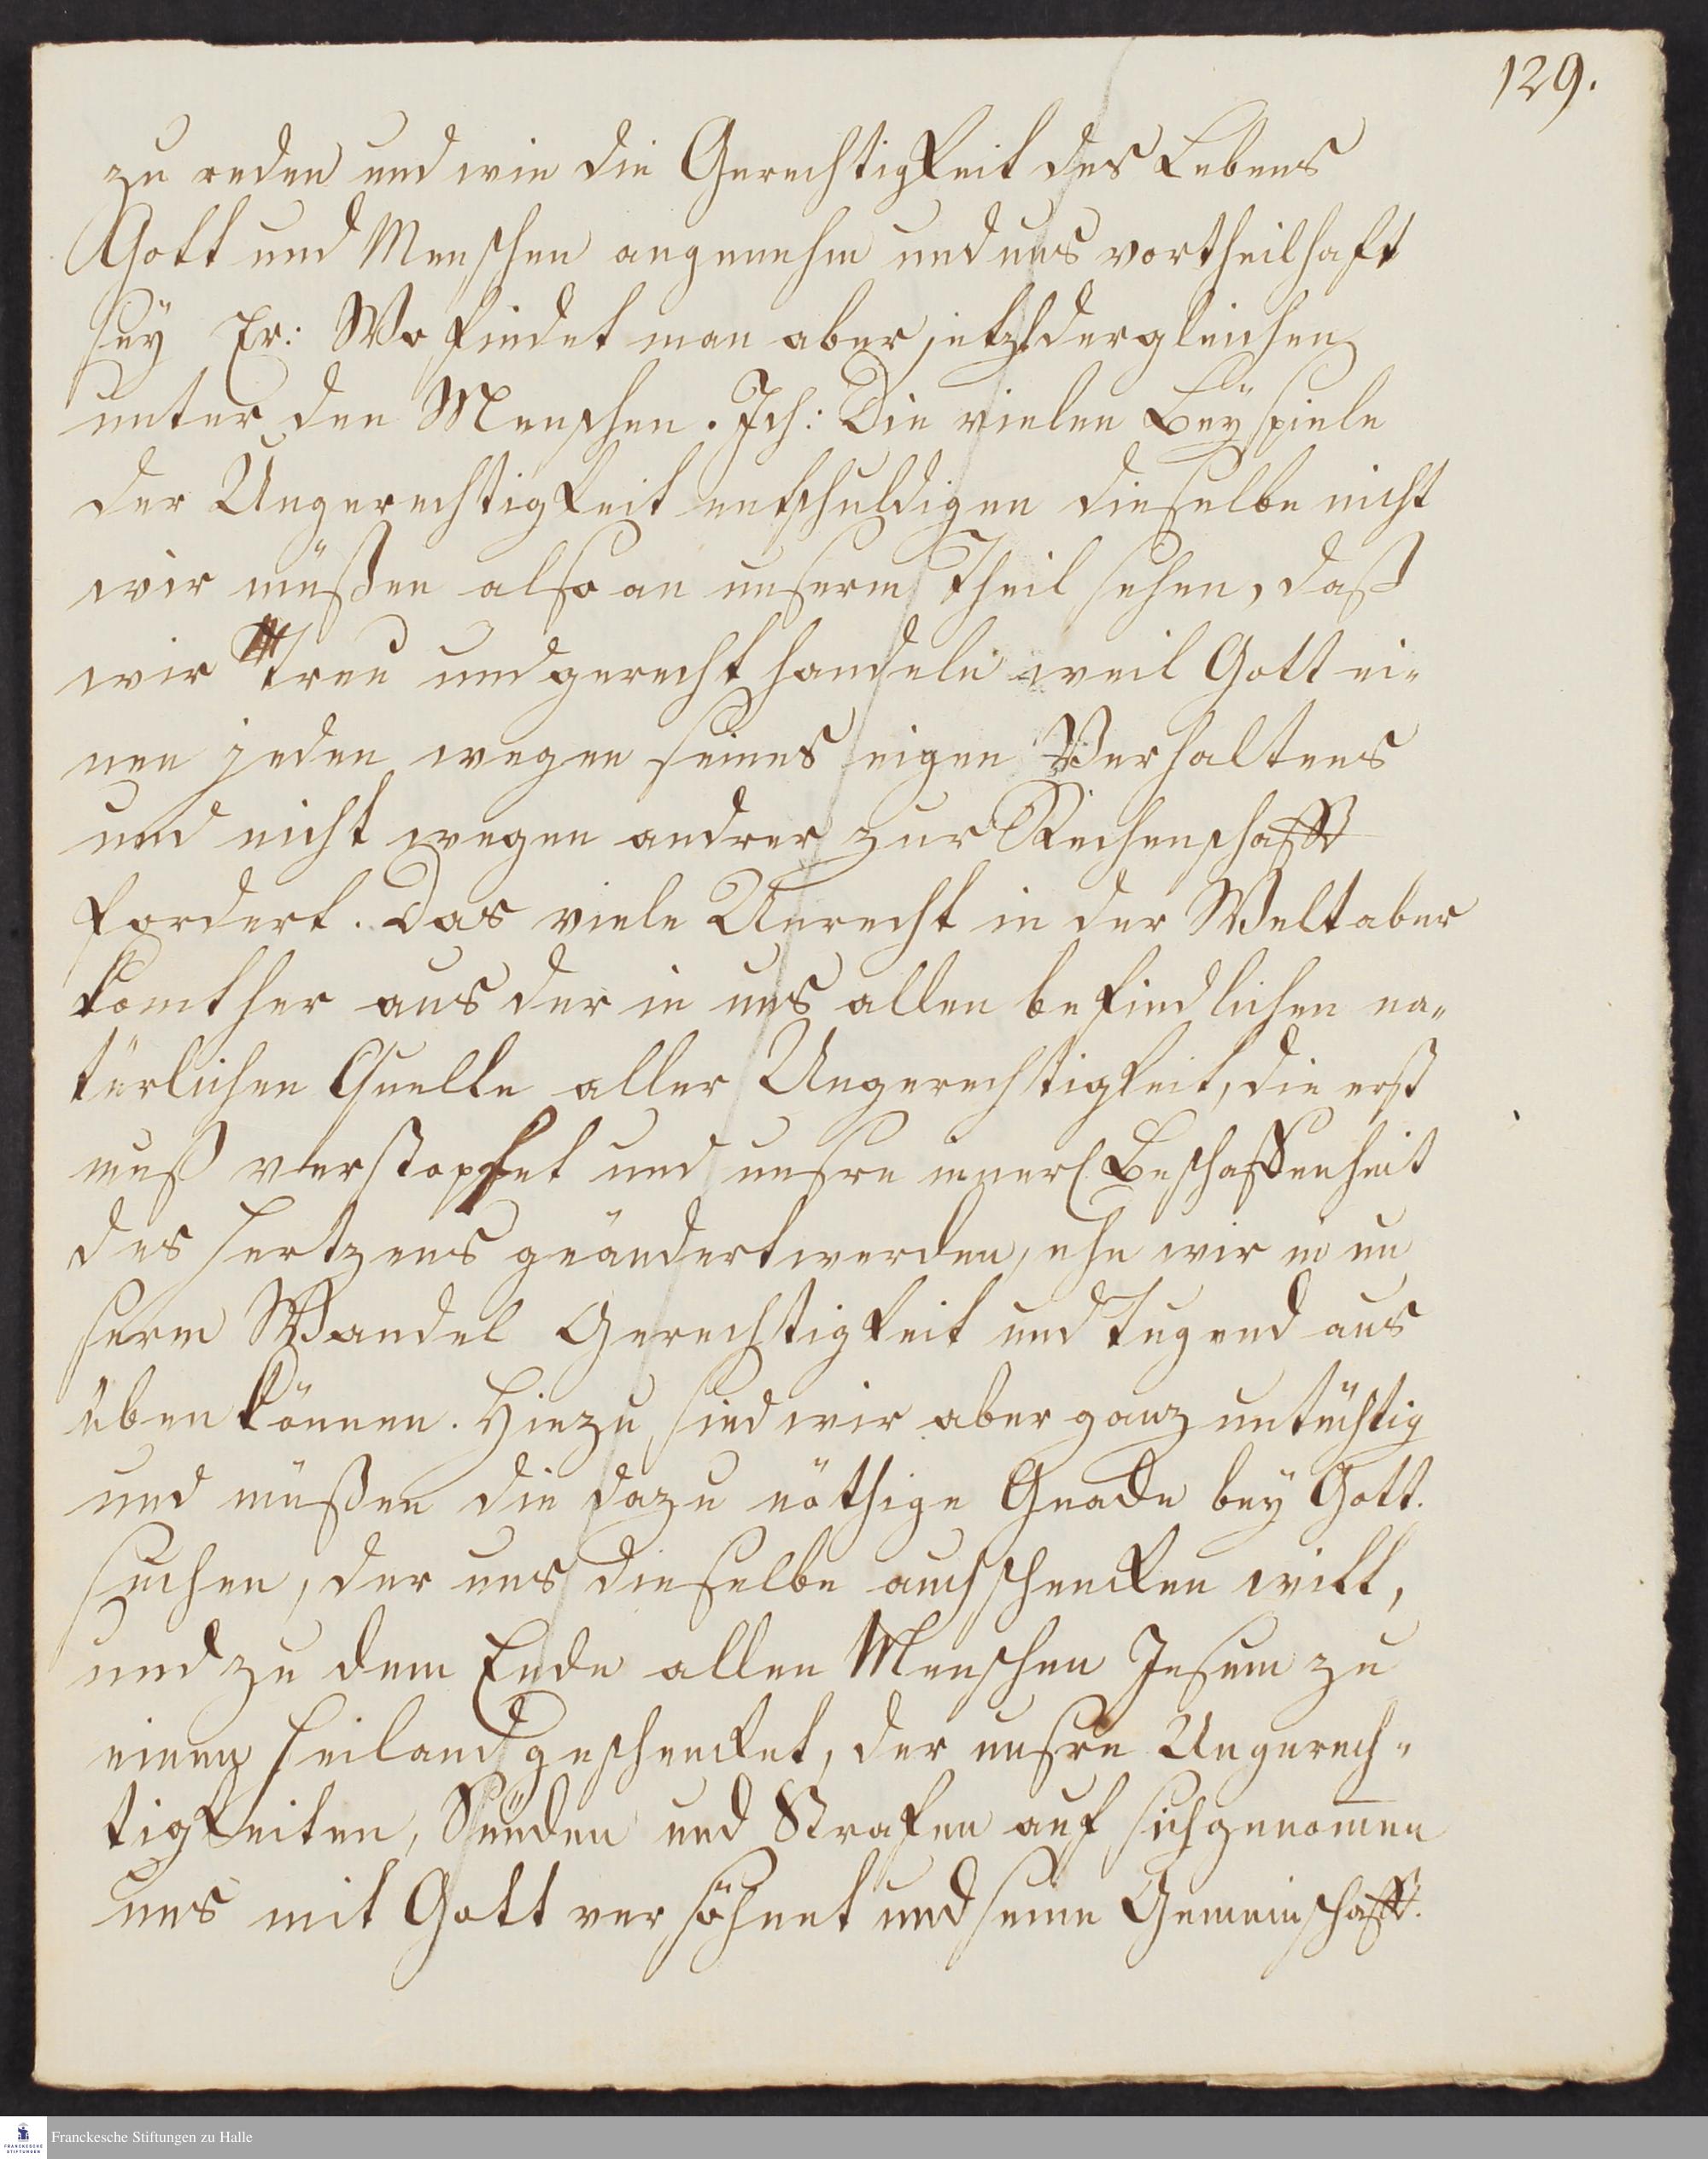 129.
zu reden und wie die Gerechtigkeit des Lebens
Gott und Menschen angenehm und uns vortheilhaft
sey Er: Wo findet man aber jetzt dergleichen
unter den Menschen. Ich: Die vielen Beyspiele
der Ungerechtigkeit entschuldigen dieselbe nicht
wir müßen also an unserm Theil sehen, daß
wir treu und gerecht handeln weil Gott ei-
nen jeden wegen seines eigen Verhaltens
und nicht wegen andrer zur Rechenschafft
fordert. Das viele Unrecht in der Welt aber
komt her aus der in uns allen befindlichen na-
türlichen Quelle aller Ungerechtigkeit, die erst
muß verstopfet und unsre innerl Beschaffenheit
des Hertzens geändert werden, ehe wir in un
serm Wandel Gerechtigkeit und Tugend aus
üben können. Hiezu sind wir aber ganz untüchtig
und müßen die dazu nöthige Gnade bey Gott.
suchen, der uns dieselbe auch schencken will,
und zu dem Ende allen Menschen Jesum zu
einem Heiland geschencket, der unsre Ungerech-
tigkeiten, Sünden und Strafen auf sich genom̅en
uns mit Gott versöhnet und seine Gemeinschafft.
Franckesche Stiftungen zu Halle